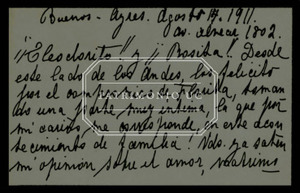 Buenos-Ayres. Agosto 14, 911.
"Eleodorito" y "¡Rosita!" Desde
este lado de los Andes, los felicito
por el compromiso de familia, toman
do una parte muy íntima, la que por
mi cariño me corresponde, en este acon
tecimiento de familia! Uds. ya saben
mi opinión sobre el amor,